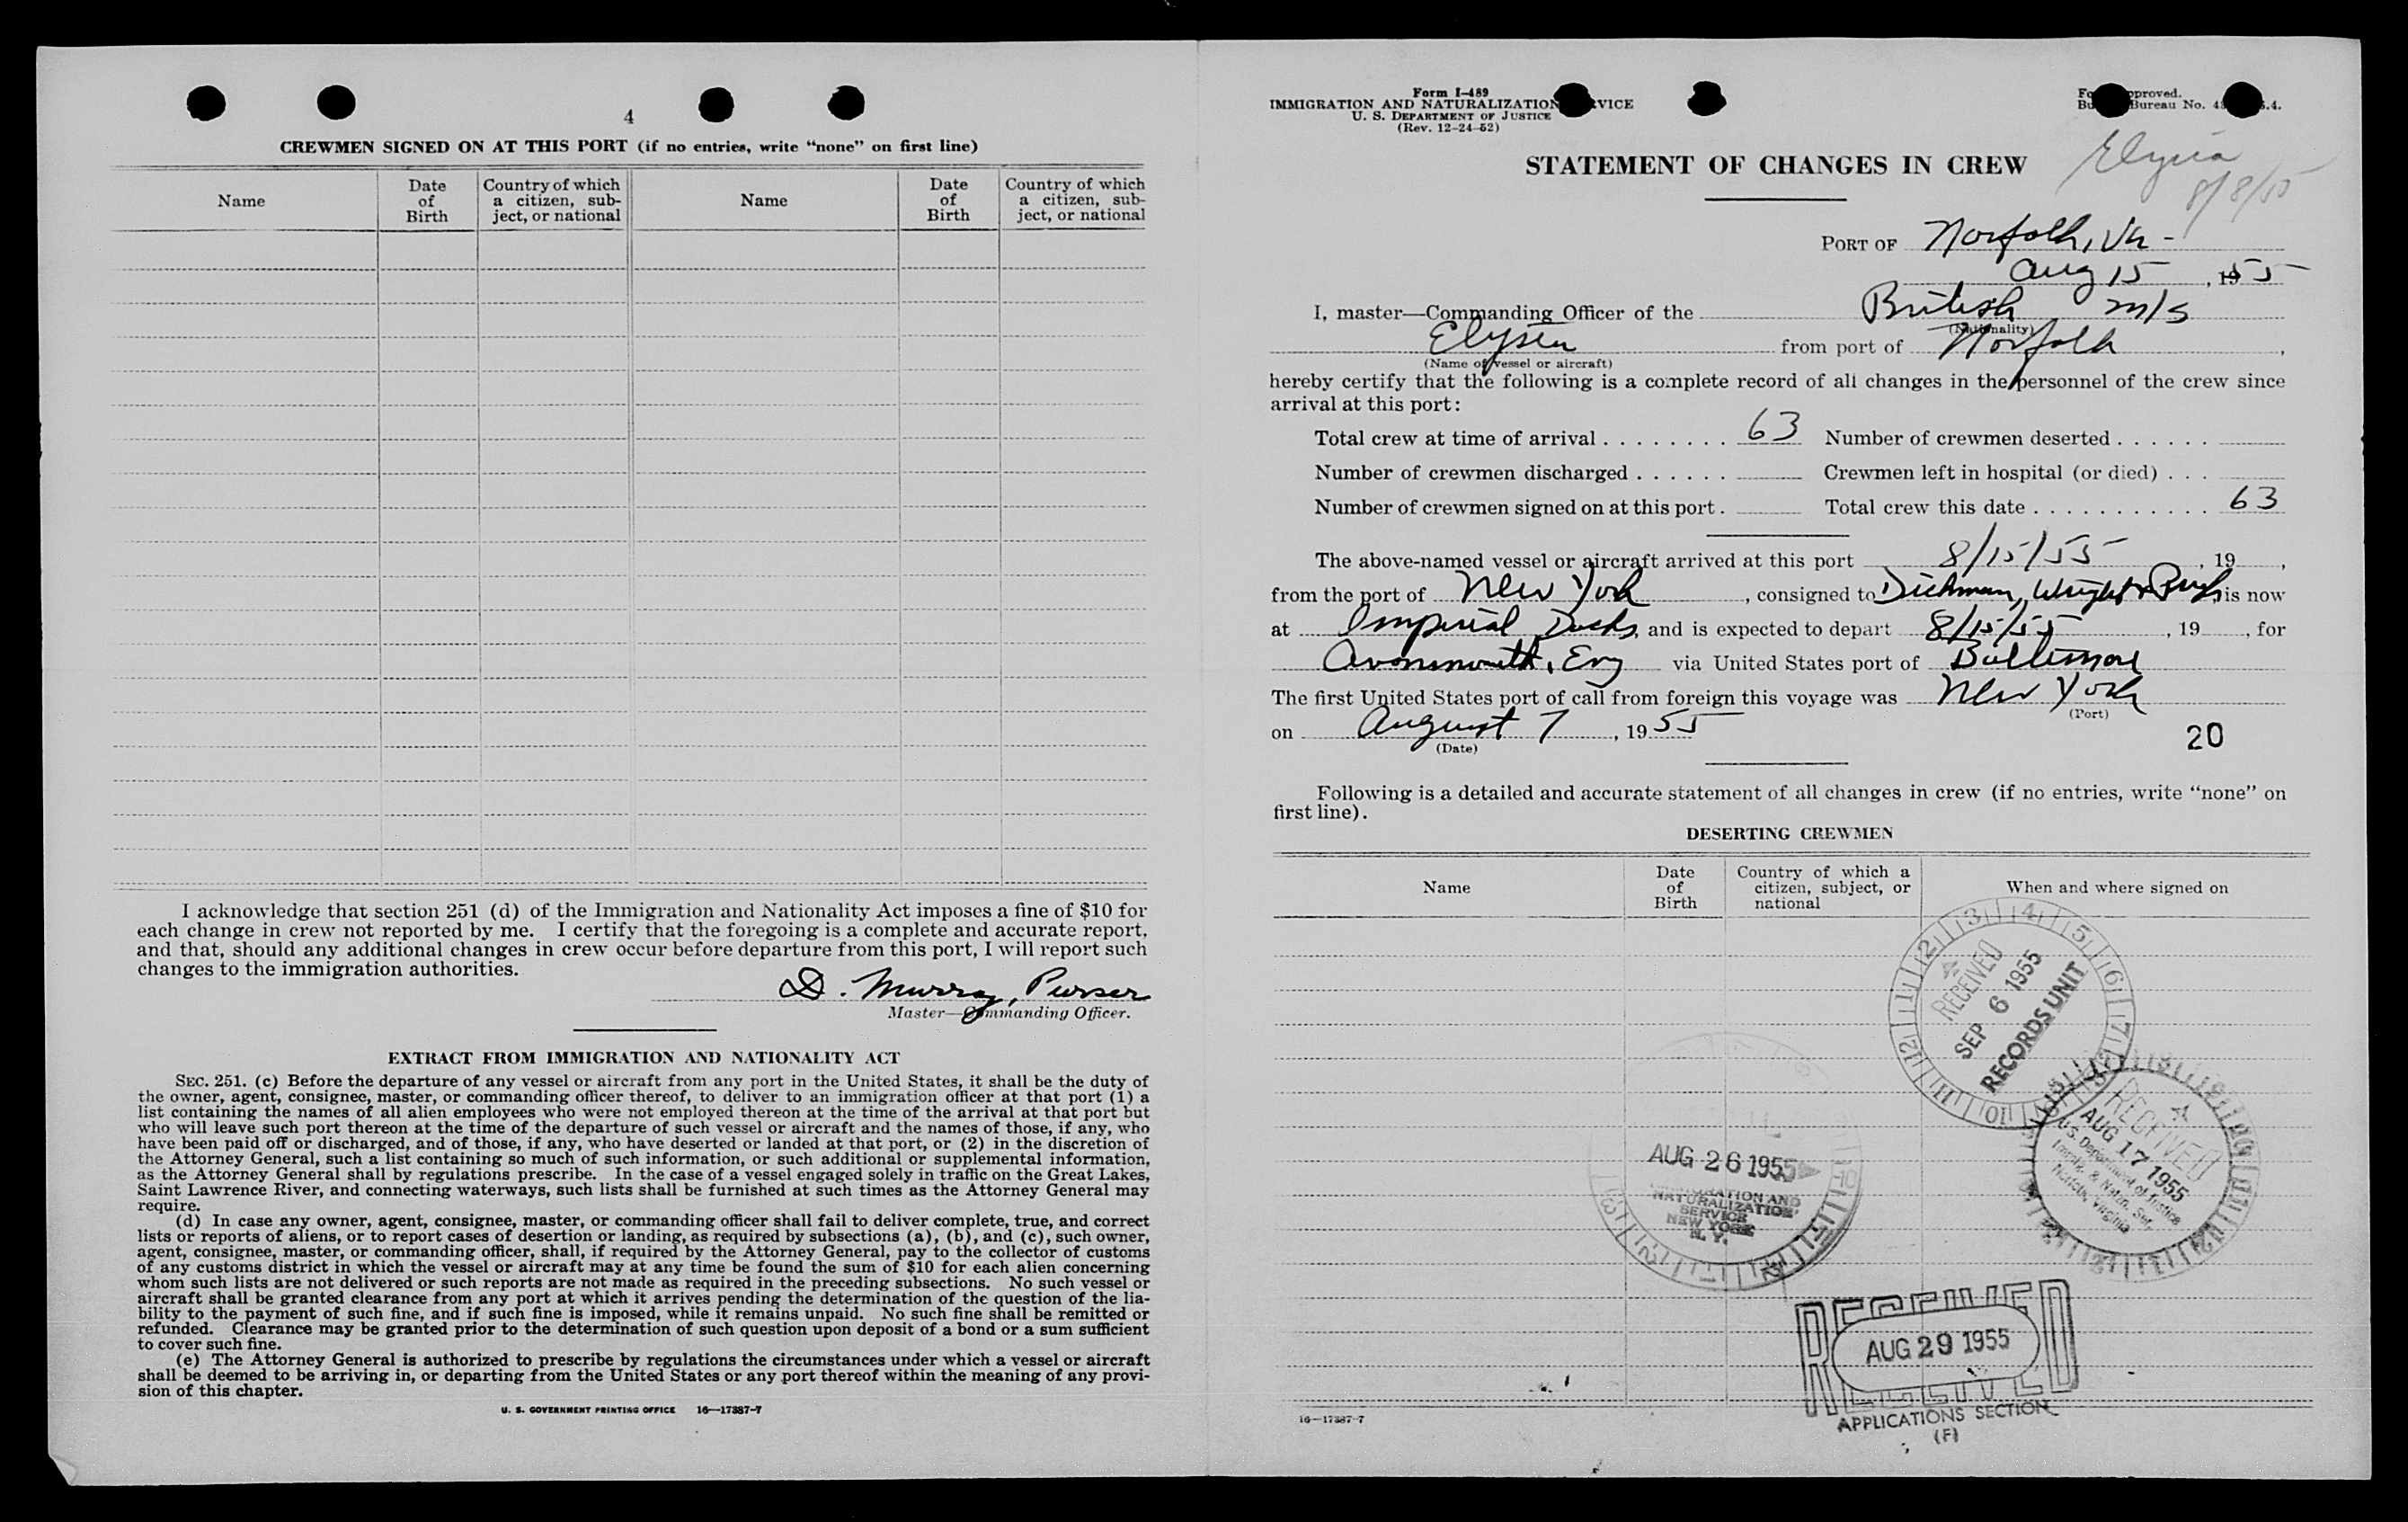 4
CREWMEN SIGNED ON AT THIS PORT (if no entries, write “none” on first line)
Name
Date of Birth
Country of which a citizen, sub-ject, or national
Name
Date of Birth
Country of which a citizen, sub-ject, or national
I acknowledge that section 251 (d) of the Immigration and Nationality Act imposes a fine of $10 for
each change in crew not reported by me. I certify that the foregoing is a complete and accurate report,
and that, should any additional changes in crew occur before departure from this port, I will report such
changes to the immigration authorities.
D. Murray, Purser
Master—Commanding Officer.
EXTRACT FROM IMMIGRATION AND NATIONALITY ACT
SEC. 251. (c) Before the departure of any vessel or aircraft from any port in the United States, it shall be the duty of
the owner, agent, consignee, master, or commanding officer thereof, to deliver to an immigration officer at that port (1) a
list containing the names of all alien employees who were not employed thereon at the time of the arrival at that port but
who will leave such port thereon at the time of the departure of such vessel or aircraft and the names of those, if any, who
have been paid off or discharged, and of those, if any, who have deserted or landed at that port, or (2) in the discretion of
the Attorney General, such a list containing so much of such information, or such additional or supplemental information,
as the Attorney General shall by regulations prescribe. In the case of a vessel engaged solely in traffic on the Great Lakes,
Saint Lawrence River, and connecting waterways, such lists shall be furnished at such times as the Attorney General may
require.
(d) In case any owner, agent, consignee, master, or commanding officer shall fail to deliver complete, true, and correct
lists or reports of aliens, or to report cases of desertion or landing, as required by subsections (a), (b), and (c), such owner,
agent, consignee, master, or commanding officer, shall, if required by the Attorney General, pay to the collector of customs
of any customs district in which the vessel or aircraft may at any time be found the sum of $10 for each alien concerning
whom such lists are not delivered or such reports are not made as required in the preceding subsections. No such vessel or
aircraft shall be granted clearance from any port at which it arrives pending the determination of the question of the lia-
bility to the payment of such fine, and if such fine is imposed, while it remains unpaid. No such fine shall be remitted or
refunded. Clearance may be granted prior to the determination of such question upon deposit of a bond or a sum sufficient
to cover such fine.
(e) The Attorney General is authorized to prescribe by regulations the circumstances under which a vessel or aircraft
shall be deemed to be arriving in, or departing from the United States or any port thereof within the meaning of any provi-
sion of this chapter.
U. S. GOVERNMENT PRINTING OFFICE 16—17387-7
Form I-489
IMMIGRATION AND NATURALIZATION
U. S. DEPARTMENT OF JUSTICE
(Rev. 12-24-52)
Bureau No.
STATEMENT OF CHANGES IN CREW
Elysia
8/8/55
PORT OF Norfolk, Va -
Aug 15, 1955
I, master—Commanding Officer of the British m/s
(Nationality)
Elysia from port of Norfolk,
(Name of vessel or aircraft)
hereby certify that the following is a complete record of all changes in the personnel of the crew since
arrival at this port:
Total crew at time of arrival . . . . . . . . 63 Number of crewmen deserted . . . . . .
Number of crewmen discharged . . . . . . Crewmen left in hospital (or died) . . .
Number of crewmen signed on at this port . Total crew this date . . . . . . . . . . . 63
The above-named vessel or aircraft arrived at this port 8/15/55, 19 ,
from the port of New York, consigned to Dichman, Wright & Pugh, is now
at Imperial Docks, and is expected to depart 8/15/55, 19 , for
Avonmouth, Eng via United States port of Baltimore
The first United States port of call from foreign this voyage was New York
(Port)
on August 7, 1955
(Date)
20
Following is a detailed and accurate statement of all changes in crew (if no entries, write “none” on
first line).
DESERTING CREWMEN
Name
Date of Birth
Country of which a citizen, subject, or national
When and where signed on
RECEIVED
SEP 6 1955
RECORDS UNIT
RECEIVED
AUG 17 1955
U.S. Department of Justice
Immig. & Natzn. Ser.
Norfolk, Virginia
AUG 26 1955
IMMIGRATION AND
NATURALIZATION
SERVICE
NEW YORK
N. Y.
RECEIVED
AUG 29 1955
RECEIVED
APPLICATIONS SECTION
(F)
16—17387-7